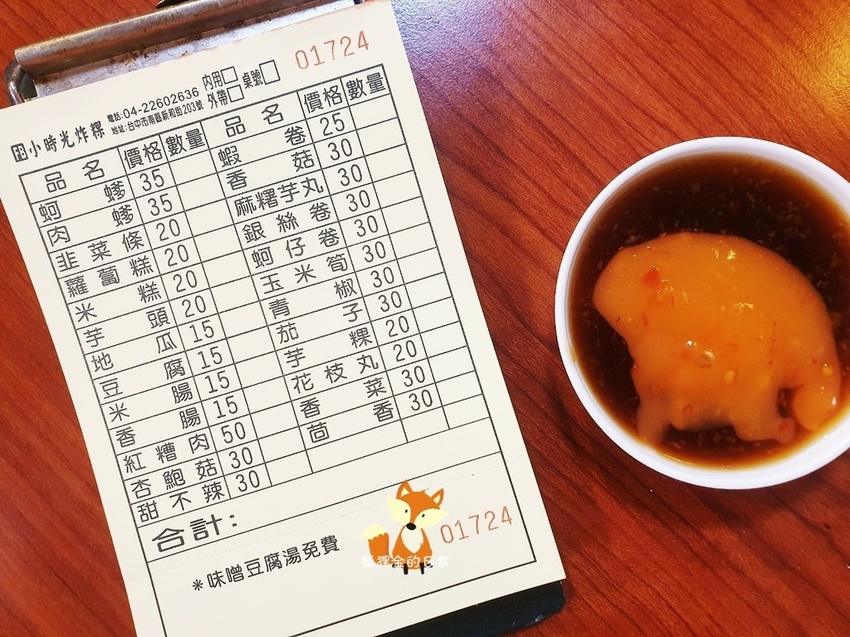 01724
小時光炸粿 電話:04-22602636 內用□ 桌號□
地址:台中市南區新和街203號 外帶□
品名 價格 數量 品名 價格 數量
蚵嗲 35 蝦卷 25
肉嗲 35 香菇 30
韭菜條 20 麻糬芋丸 30
蘿蔔糕 20 銀絲卷 30
米糕 20 蚵仔卷 30
芋頭 20 玉米筍 30
地瓜 15 青椒 30
豆腐 15 茄子 30
米腸 15 芋粿 20
香腸 15 花枝丸 20
紅糟肉 50 香菜 30
杏鮑菇 30 茴香 30
甜不辣 30
合計:
*味噌豆腐湯免費
01724
狐狸金的日常